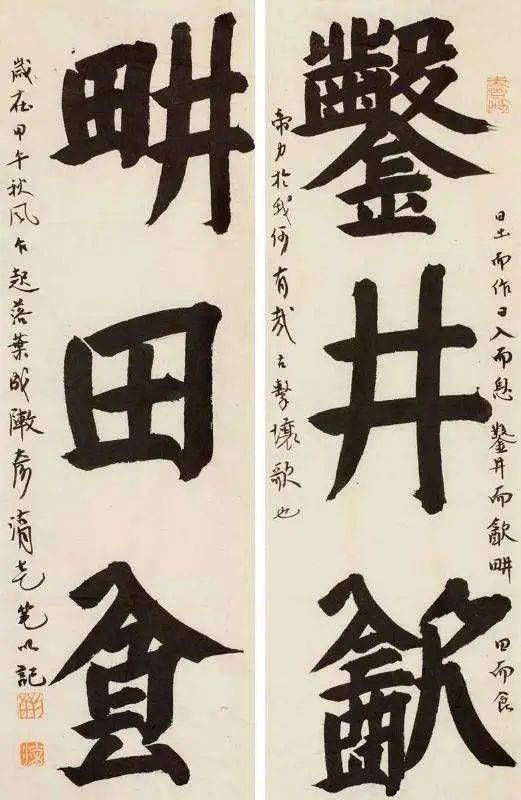 鑿井飲
日出而作日入而息鑿井而飲畊
田而食
帝力於我何有哉古擊壤歌也
畊田食
歲在甲午秋風乍起落葉成陣彥湑乞筆以記